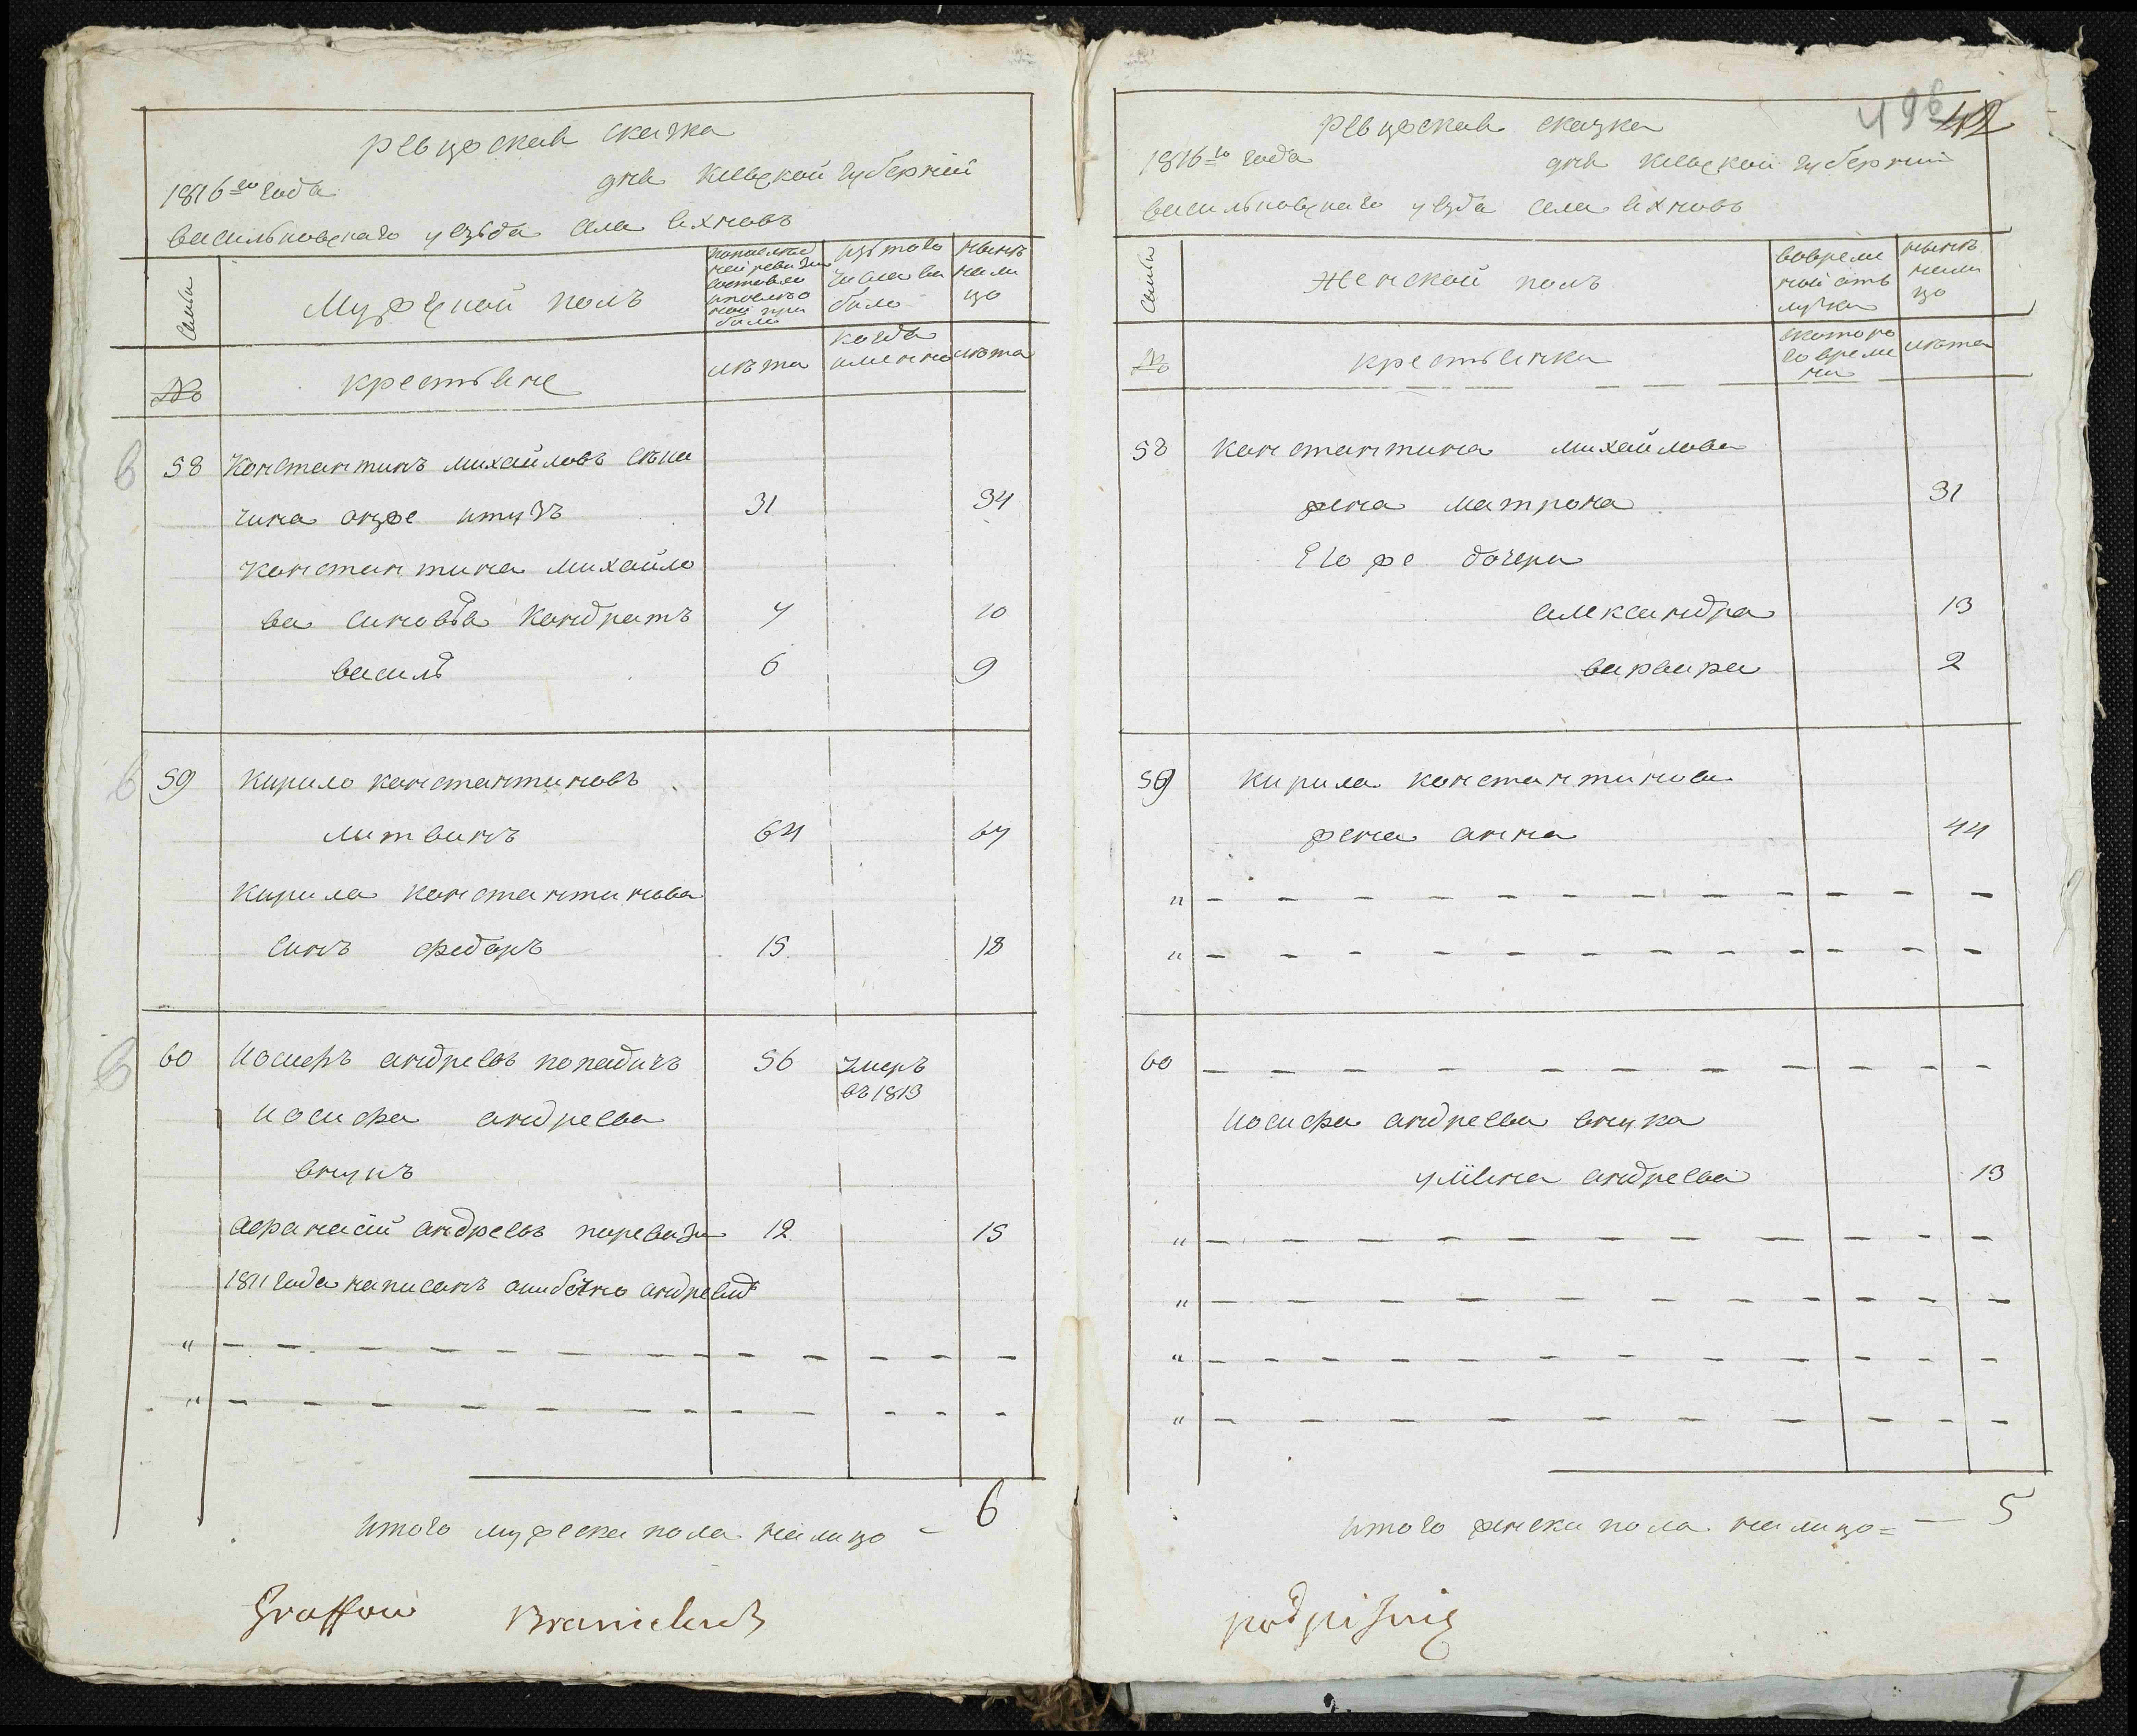 ревизская сказка
1816го года дня киевской губерний
васильковскаго уезда села вхновъ
семьи
Мужеской полъ
изъ того числа вы было
ныне на лицо
№
крестьяне
лета
когда именно
лета
58 Константинъ михайловъ
31 34
константина михайло
ва синовья кондратъ 7 10
василь 6 9
59 кирило константиновъ
литвинъ 64 67
кирила константинова
синъ федоръ 15 18
60 иосифъ андреевъ попадичъ 56 умеръ
въ 1813
иосифа андреева
внукъ
афанасий андреевъ 12 15
1811 года написанъ ошибочно андреемъ
итого мужеска пола налицо – 6
Graffow Branickich
498 42
ревизская сказка
1816го года дня киевской губернии
васильковскаго уезда села вхновъ
семьи
Женской полъ
во време
ной отъ
лучке
ныне
нали
цо
№
крестьянки
с котора
го време
ни
лета
58 константина михайлова
жена матрона 31
его же дочери
александра 13
варвара 2
59 кирила константинова
жена анна 44
60
иосифа андреева внука
улияна андреева 13
итого женска пола налицо = — 5
podpisuię